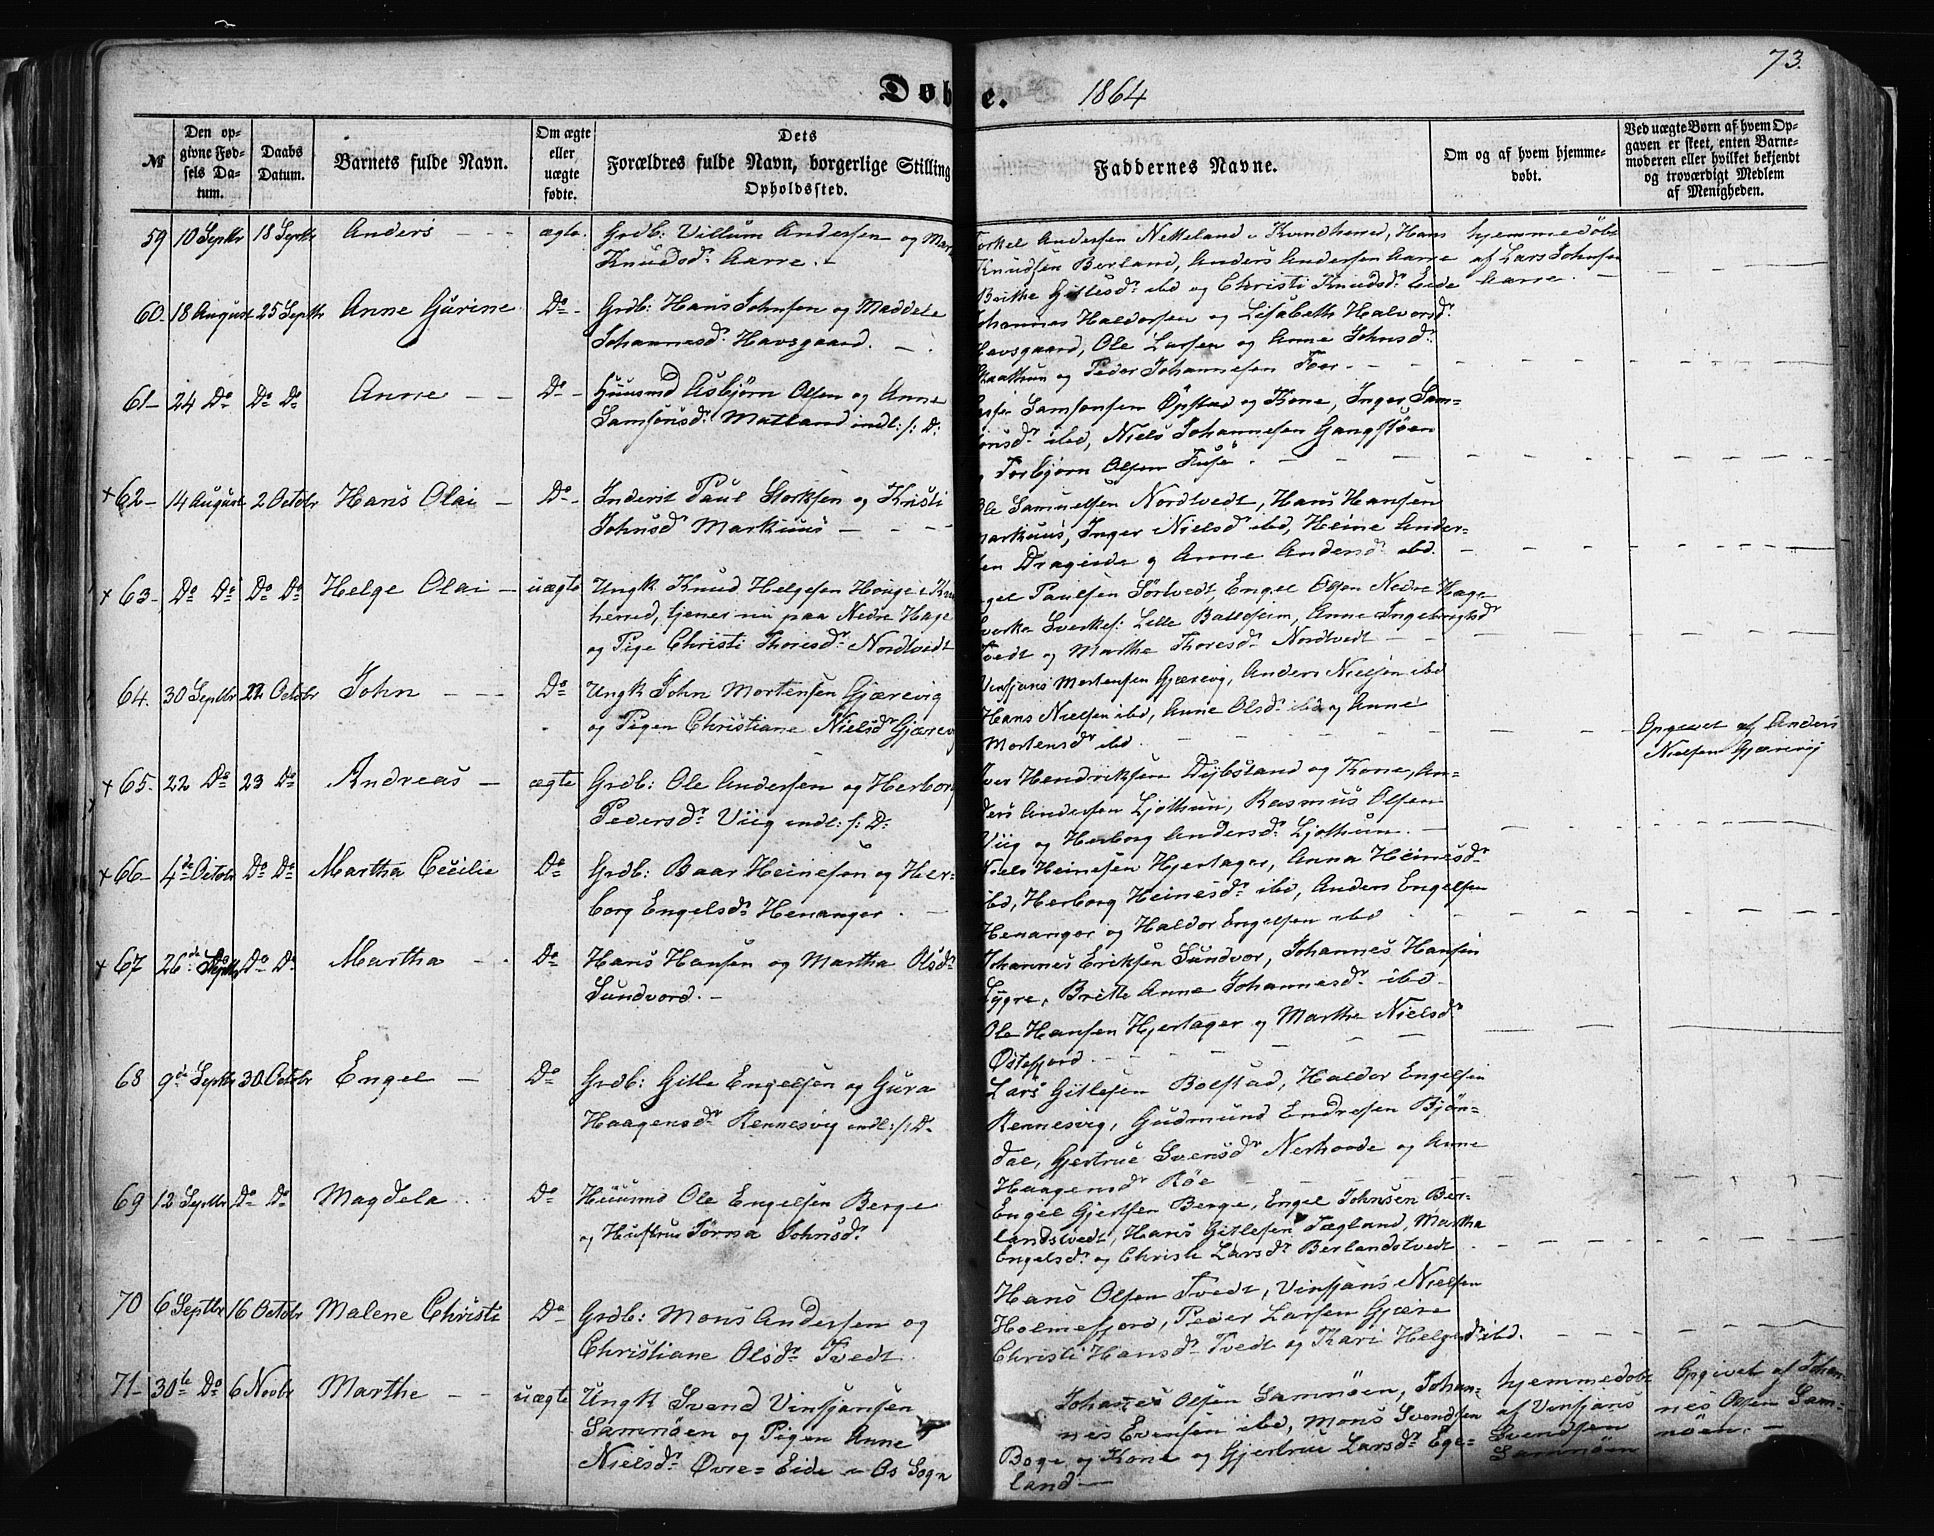 73.
Døbte. 1864
№
Den op-
givne Fød-
sels Da-
tum.
Daabs
Datum.
Barnets fulde Navn.
Om ægte
eller
uægte
fødte.
Dets
Forældres fulde Navn, borgerlige Stilling
Opholdssted.
Faddernes Navne.
Om og af hvem hjemme-
døbt.
Ved uægte Børn af hvem Op-
gaven er skeet, enten Barne-
moderen eller hvilket bekjendt
og troværdigt Medlem
af Menigheden.
59 10 Septbr 18 Septbr Anders — — ægte Grdb: Villum Andersen og
Knudsdr Aarre. —
Torkel Andersen Netteland i Kvindherred, Hans
Knudsen Berland, Anders Andersen Aarre
Brithe Gitlesdr ibd og Christi Knudsdr Eide
hjemmedøbt
af Lars Johnsen
Aarre. —
60- 18 August 25 Septbr Anne Gurine Do- Grdb: Hans Johnsen og Maddele
Johannesdr Havsgaard. —
Johannes Haldorsen og Lisabeth Halvorsdr
Havsgaard, Ole Larsen og Anne Johnsdr
og Peder Johannesen
61- 24 Do Do Do Anne — — Do- Huusmd Asbjørn Olsen og Anne
Samsonsdr Matland indl: f: D:
Samsonsen Øpstad og Kone, Inger Sam-
sonsdr ibd, Niels Johannesen Gangstøen
Torbjørn Olsen Fuse. —
× 62- 14 August 2 Octobr Hans Olai — Do- Inderst Paul Storksen og Kristi
Johnsdr Markuus —
Ole Samuelsen Nordtvedt, Hans Hansen
Markuus, Inger Nielsdr ibd, Heine Ander-
sen Drageide og Anne Andersdr ibd. —
× 63- Do Do Do Do Helge Olai — uægte Ungk Knud Helgesen Hauge i
herred, tjener nu paa Nedre Hage
og Pige Christi Thoresdr Nordtvedt
Engel Paulsen Sørtvedt, Engel Olsen Nedre Hage
Sverke Sverkes: Lille Baldheim, Anne Ingebrigtsdr
Tvedt og Marthe Thoresdr Nordtvedt —
64. 30 Septbr 22 Octobr John — — Do Ungk John Mortensen Gjærevig
og Pigen Christiane Nielsdr Gjærevig
Vinsjans Mortensen Gjærevig, Anders Nielsen ibd
Hans Nielsen ibd, Anne Olsdr ibd og Anne
Mortensdr ibd. —
Opgivet af Anders
Nielsen Gjærevig
× 65- 22 Do 23 Do Andreas — ægte Grdb: Ole Andersen og Herborg
Pedersdr Viig indl: f: D:
Iver Hendriksen Dybsland og Kone, An-
ders Andersen Ljothun, Rasmus Olsen
Viig og Herborg Andersdr Ljothun. —
× 66- 4de Octobr Do Do Martha Cecilie Do Grdb: Baar Heineson og Her-
borg Engelsdr Henanger. —
Niels Heinesen Hjertager, Anna Heinesdr
ibd, Herborg Heinesdr ibd, Anders Engelsen
Henanger og Haldor Engelsen ibd
× 67 26de Septbr Do Do Martha — Do Hans Hansen og Martha Olsdr
Sundvord. —
Johannes Eriksen Sundvor, Johannes Hansen
Lygre, Britte Anne Johannesdr ibd.
Ole Hansen Hjertager og Marthe Nielsdr
Østefjord. —
68 9de Septbr 30 Octobr Engel — Do Grdb: Gitle Engelsen og Gura
Haagensdr Rennesvig indl: f: D.
Lars Gitlesen Bolstad, Haldor Engelsen
Rennesvig, Gudmund Endresen Bjøn-
dal, Gjertrue Svensdr Nerhovde og Anne
Haagensdr Røe —
69 13 Septbr Do Do Magdela Do Huusmd Ole Engelsen Berge
og Hustrue Tørna Johnsdr
Engel Gjertsen Berge, Engel Johnsen Ber-
landstvedt, Hans Gitlesen Tægland, Martha
Engelsdr og Christi Larsdr Berlandstvedt
70 6 Septbr 16 Octobr Malene Christi Do Grdb: Mons Andersen og
Christiane Olsdr Tvedt
Hans Olsen Tvedt, Vinsjans Nielsen
Holmefjord, Peder Larsen Gjære
Christi Hansdr Tvedt og Kari Helgesdr ibd.
71- 30te Do 6 Novbr Marthe — — uægte Ungk Svend Vinsjansen
Samnøen og Pigen Anne
Nielsdr Øvre-Eide i Os Sogn
Johannes Olsen Samnøen, Johan-
nes Evensen ibd, Mons Svendsen
Boge og Kone og Gjertrue Larsdr Ege-
land —
hjemmedøbt
af Vinsjans
Svendsen
Samnøen
Opgivet af Johan-
nes Olsen Sam-
nøen. —